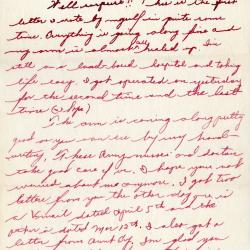 Well surprise!! This is the first
letter I wrote by myself in quite some
time. Anything is going along fine and
my arm is almost healed up. I'm
still in a hospital and taking
life easy. I got operated on yesterday
for the second time and the last
time (I hope)
The arm is coming along pretty
good as you can see by my hand-
writing. These Army nurses and doctors
take good care of us. I hope you not
worried about me anymore. I got two
letters from you the other day one is
a Vmail dated April 5th and the
other is dated Mar 12th. I also got a
letter from Aunt I'm glad you